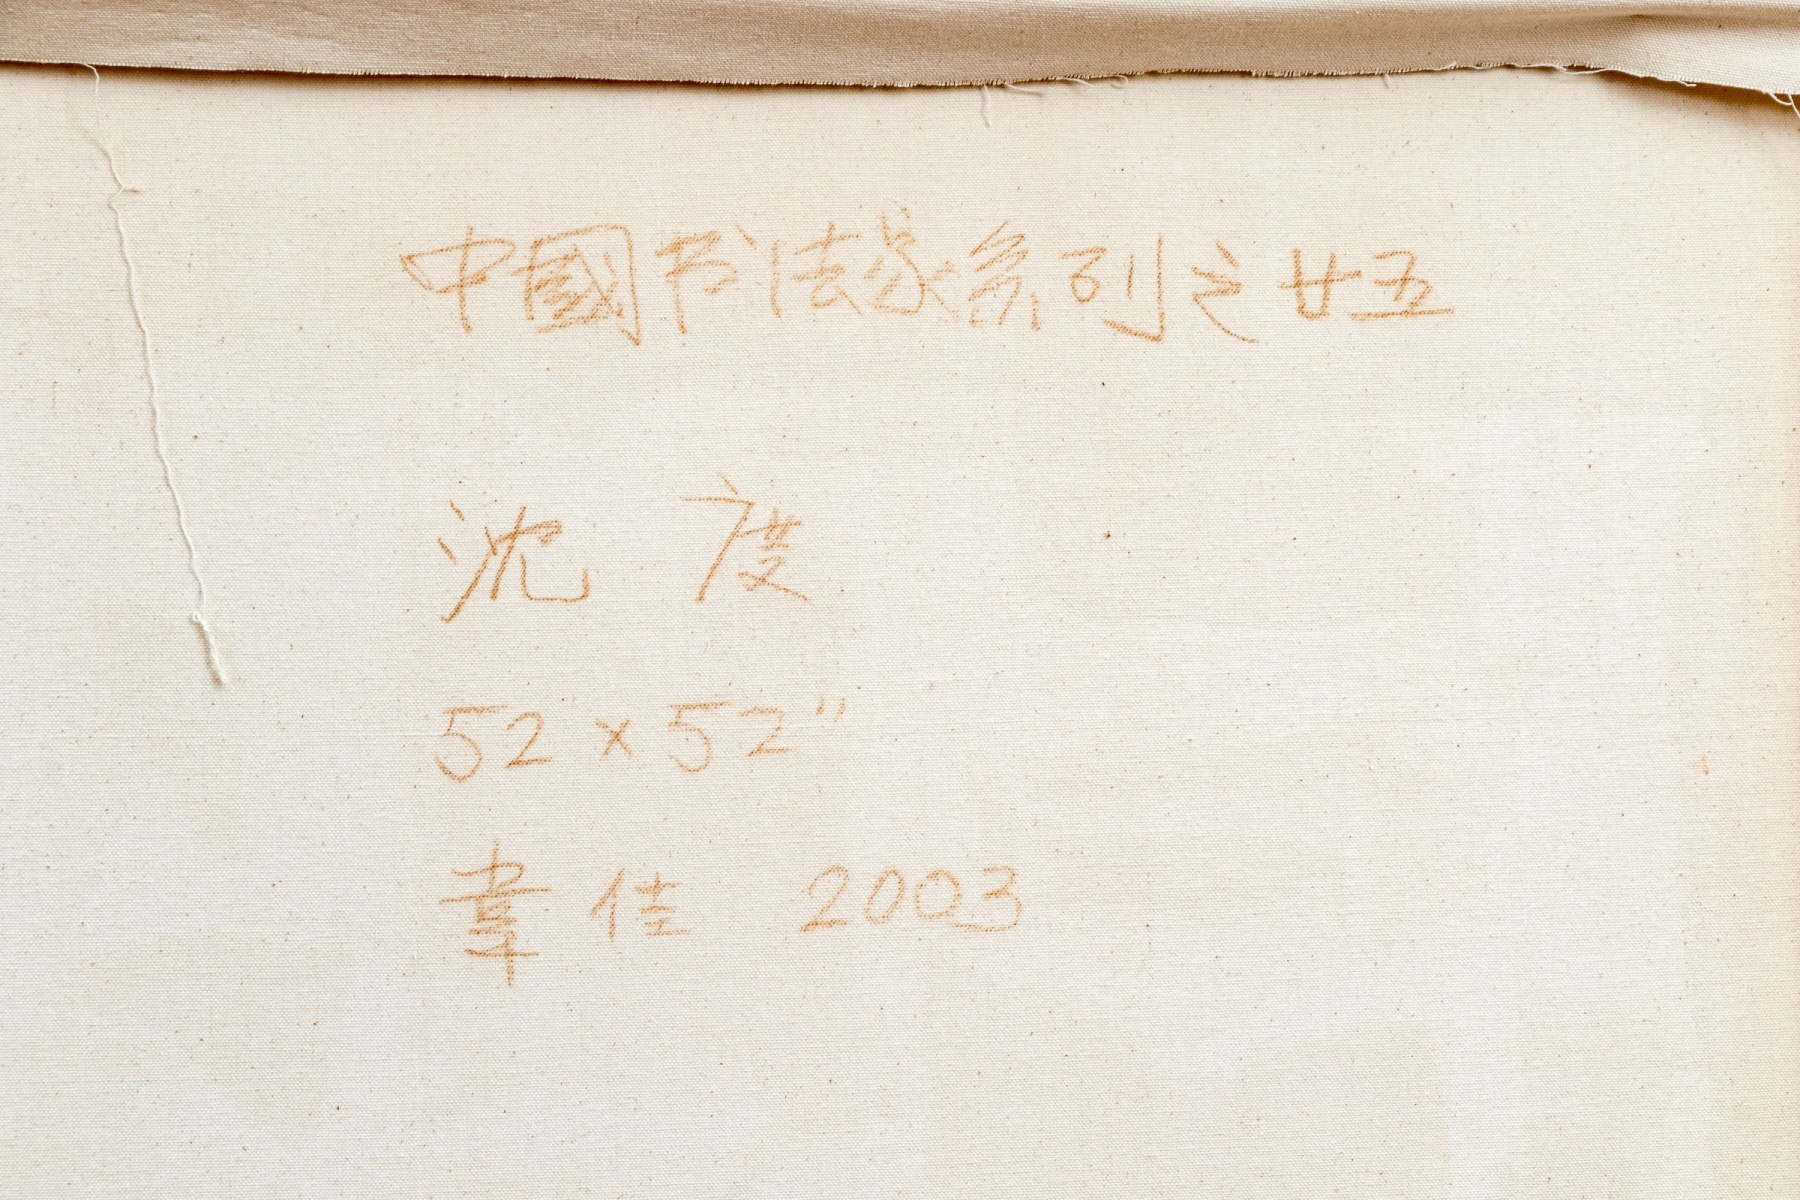 中國书法家系列之廿五
沈 度
52 x 52"
韋佳 2003